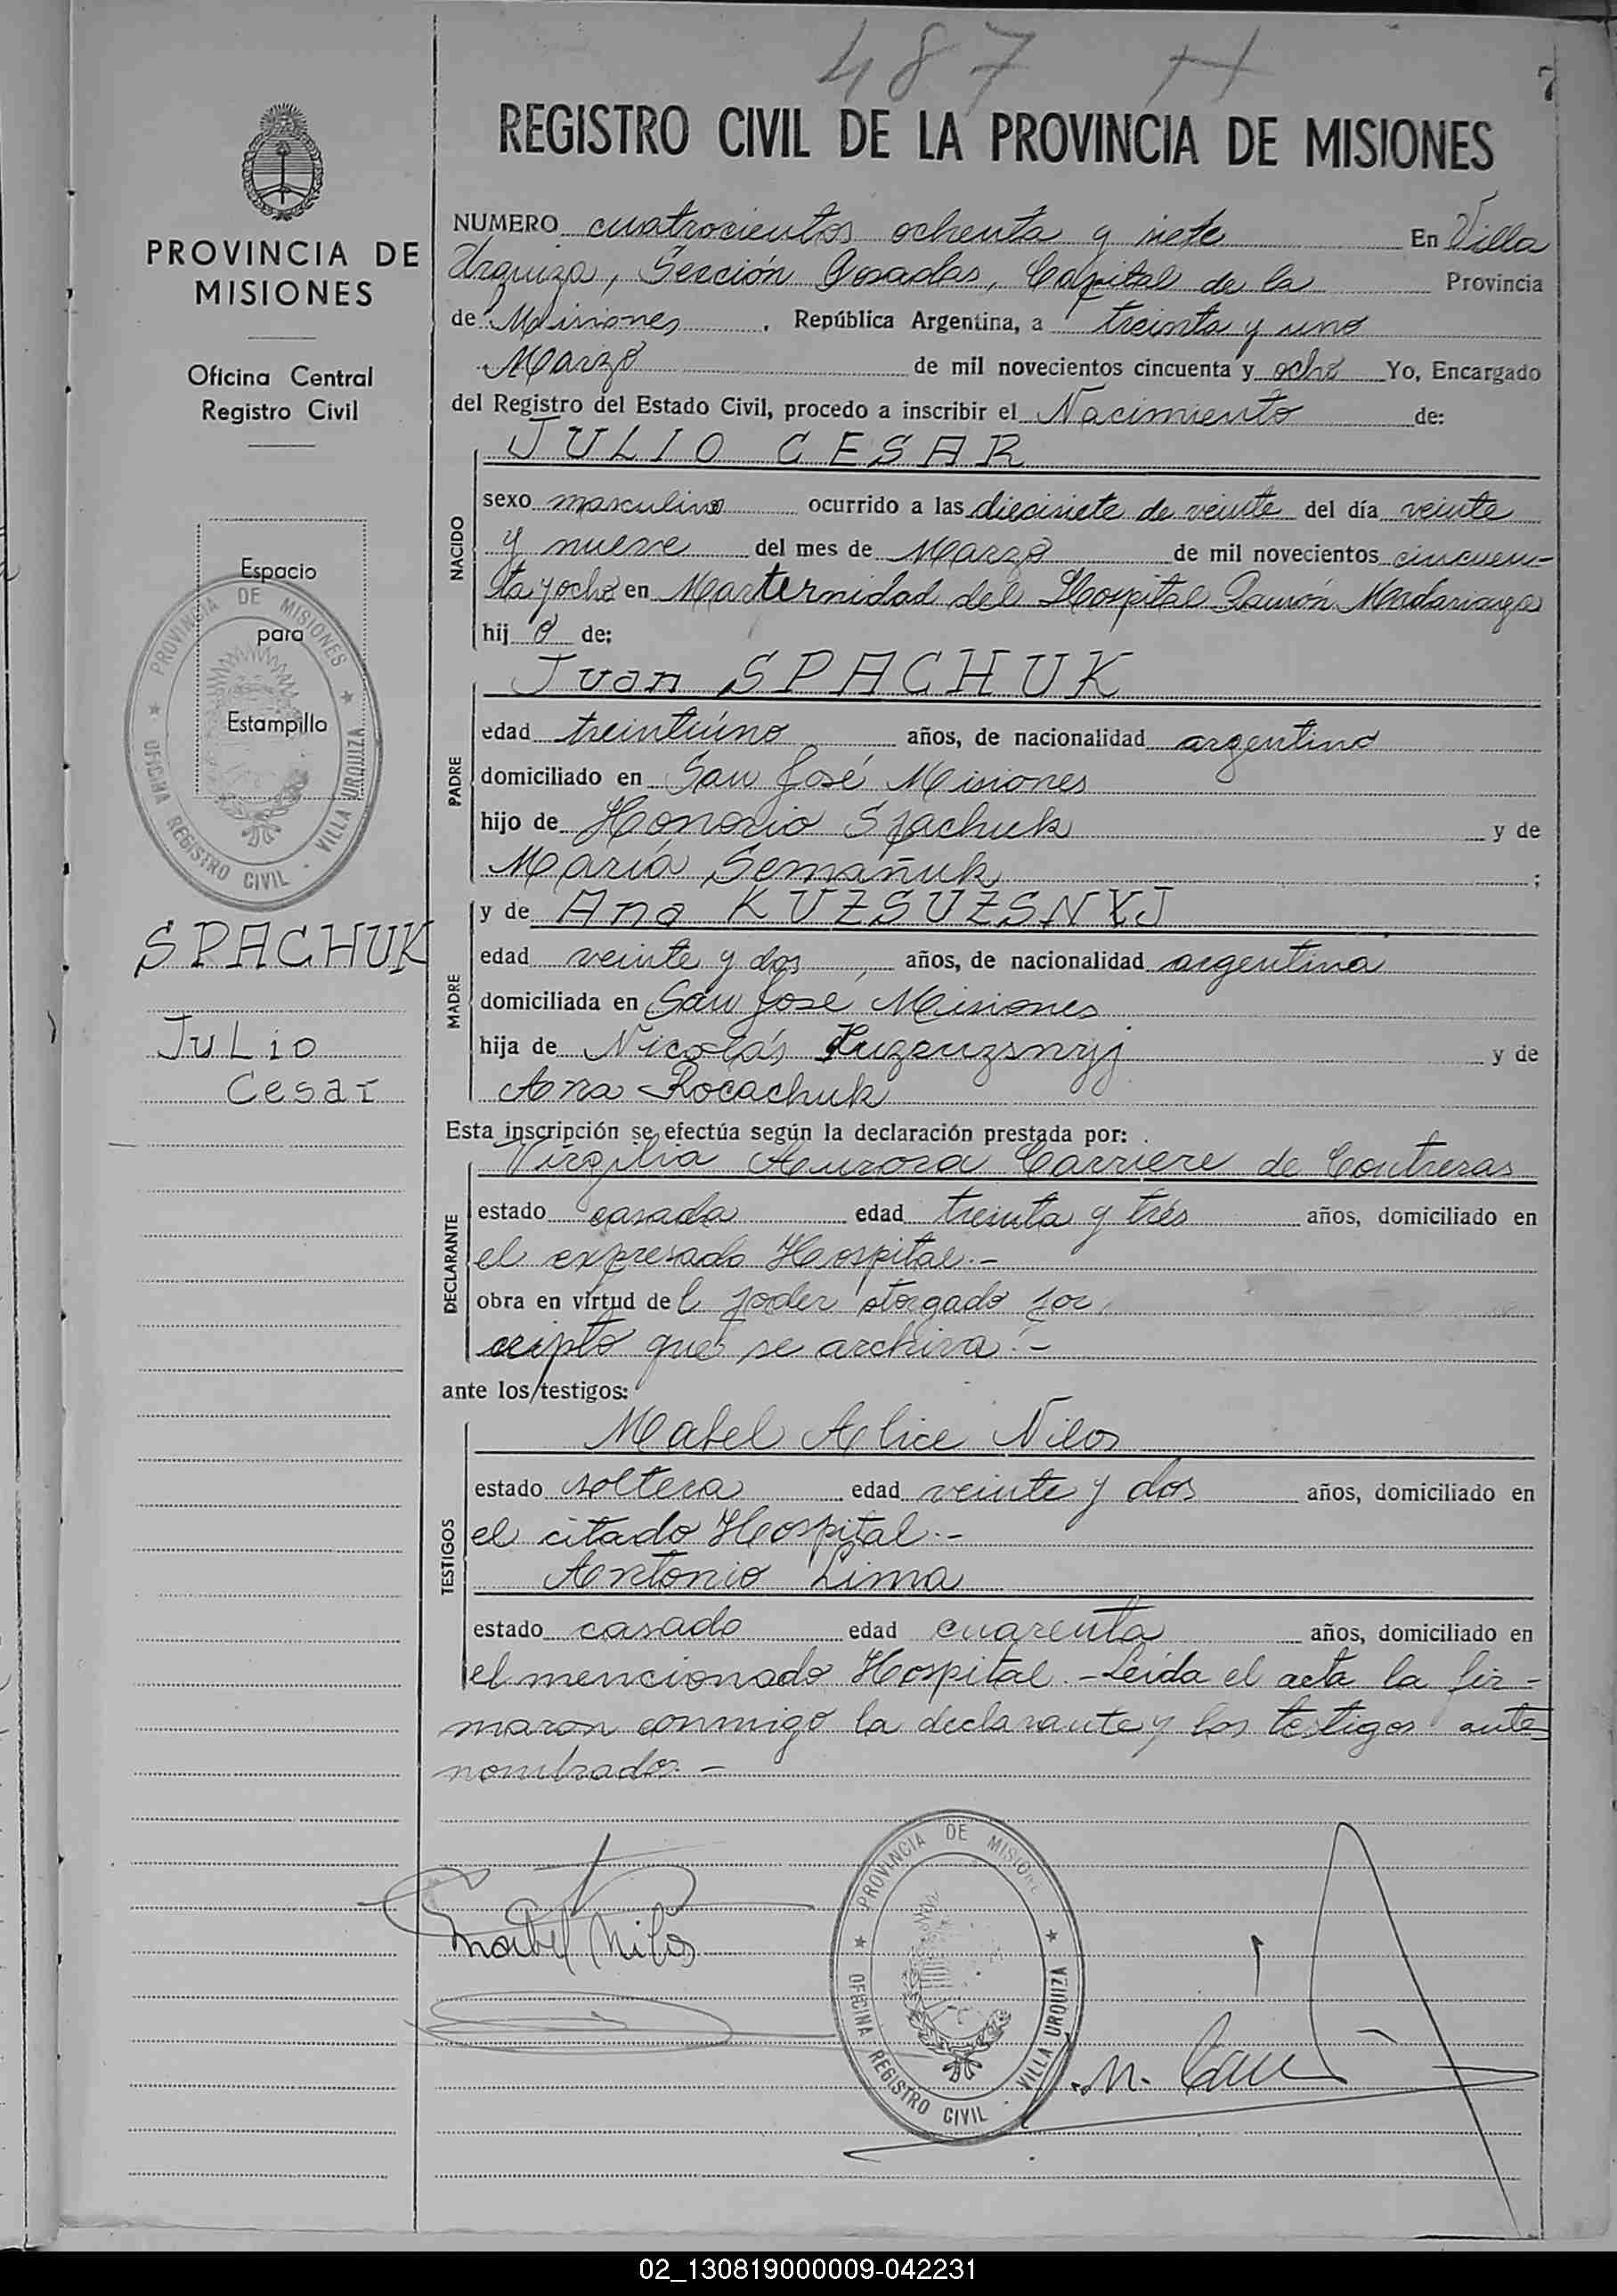 487 H
7
REGISTRO CIVIL DE LA PROVINCIA DE MISIONES
PROVINCIA DE
MISIONES
Oficina Central
Registro Civil
Espacio
para
Estampilla
PROVINCIA DE MISIONES
OFICINA REGISTRO CIVIL - VILLA URQUIZA
SPACHUK
Julio
Cesar
NUMERO cuatrocientos ochenta y siete En Villa
Urquiza, Sección Posadas, Capital de la Provincia
de Misiones, República Argentina, a treinta y uno
Marzo de mil novecientos cincuenta y ocho Yo, Encargado
del Registro del Estado Civil, procedo a inscribir el Nacimiento de:
NACIDO
JULIO CESAR
sexo masculino ocurrido a las diecisiete de veinte del día veinte
y nueve del mes de Marzo de mil novecientos cincuen-
ta y ocho en Marternidad del Hospital Ramón Madariaga
hij o de:
PADRE
Juan SPACHUK
edad treintiúno años, de nacionalidad argentino
domiciliado en San José Misiones
hijo de Honorio Spachuk y de
María Semañuk ;
MADRE
y de Ana KUZSUZSNYJ
edad veinte y dos años, de nacionalidad argentina
domiciliada en San José Misiones
hija de Nicolás y de
Ana Rocachuk
Esta inscripción se efectúa según la declaración prestada por:
DECLARANTE
Virgilia Aurora Carriere de Contreras
estado casada edad treinta y trés años, domiciliado en
el expresado Hospital.-
obra en virtud del poder otorgado por
escripto que se archiva.-
ante los testigos:
TESTIGOS
Mabel Alice Nilos
estado soltera edad veinte y dos años, domiciliado en
el citado Hospital.-
Antonio Lima
estado casado edad cuarenta años, domiciliado en
el mencionado Hospital.-Leída el acta la fir-
maron conmigo la declarante y los testigos ante
nombrados.-
Mabel Nilos
PROVINCIA DE MISIONES
OFICINA REGISTRO CIVIL - VILLA URQUIZA
02_130819000009-042231